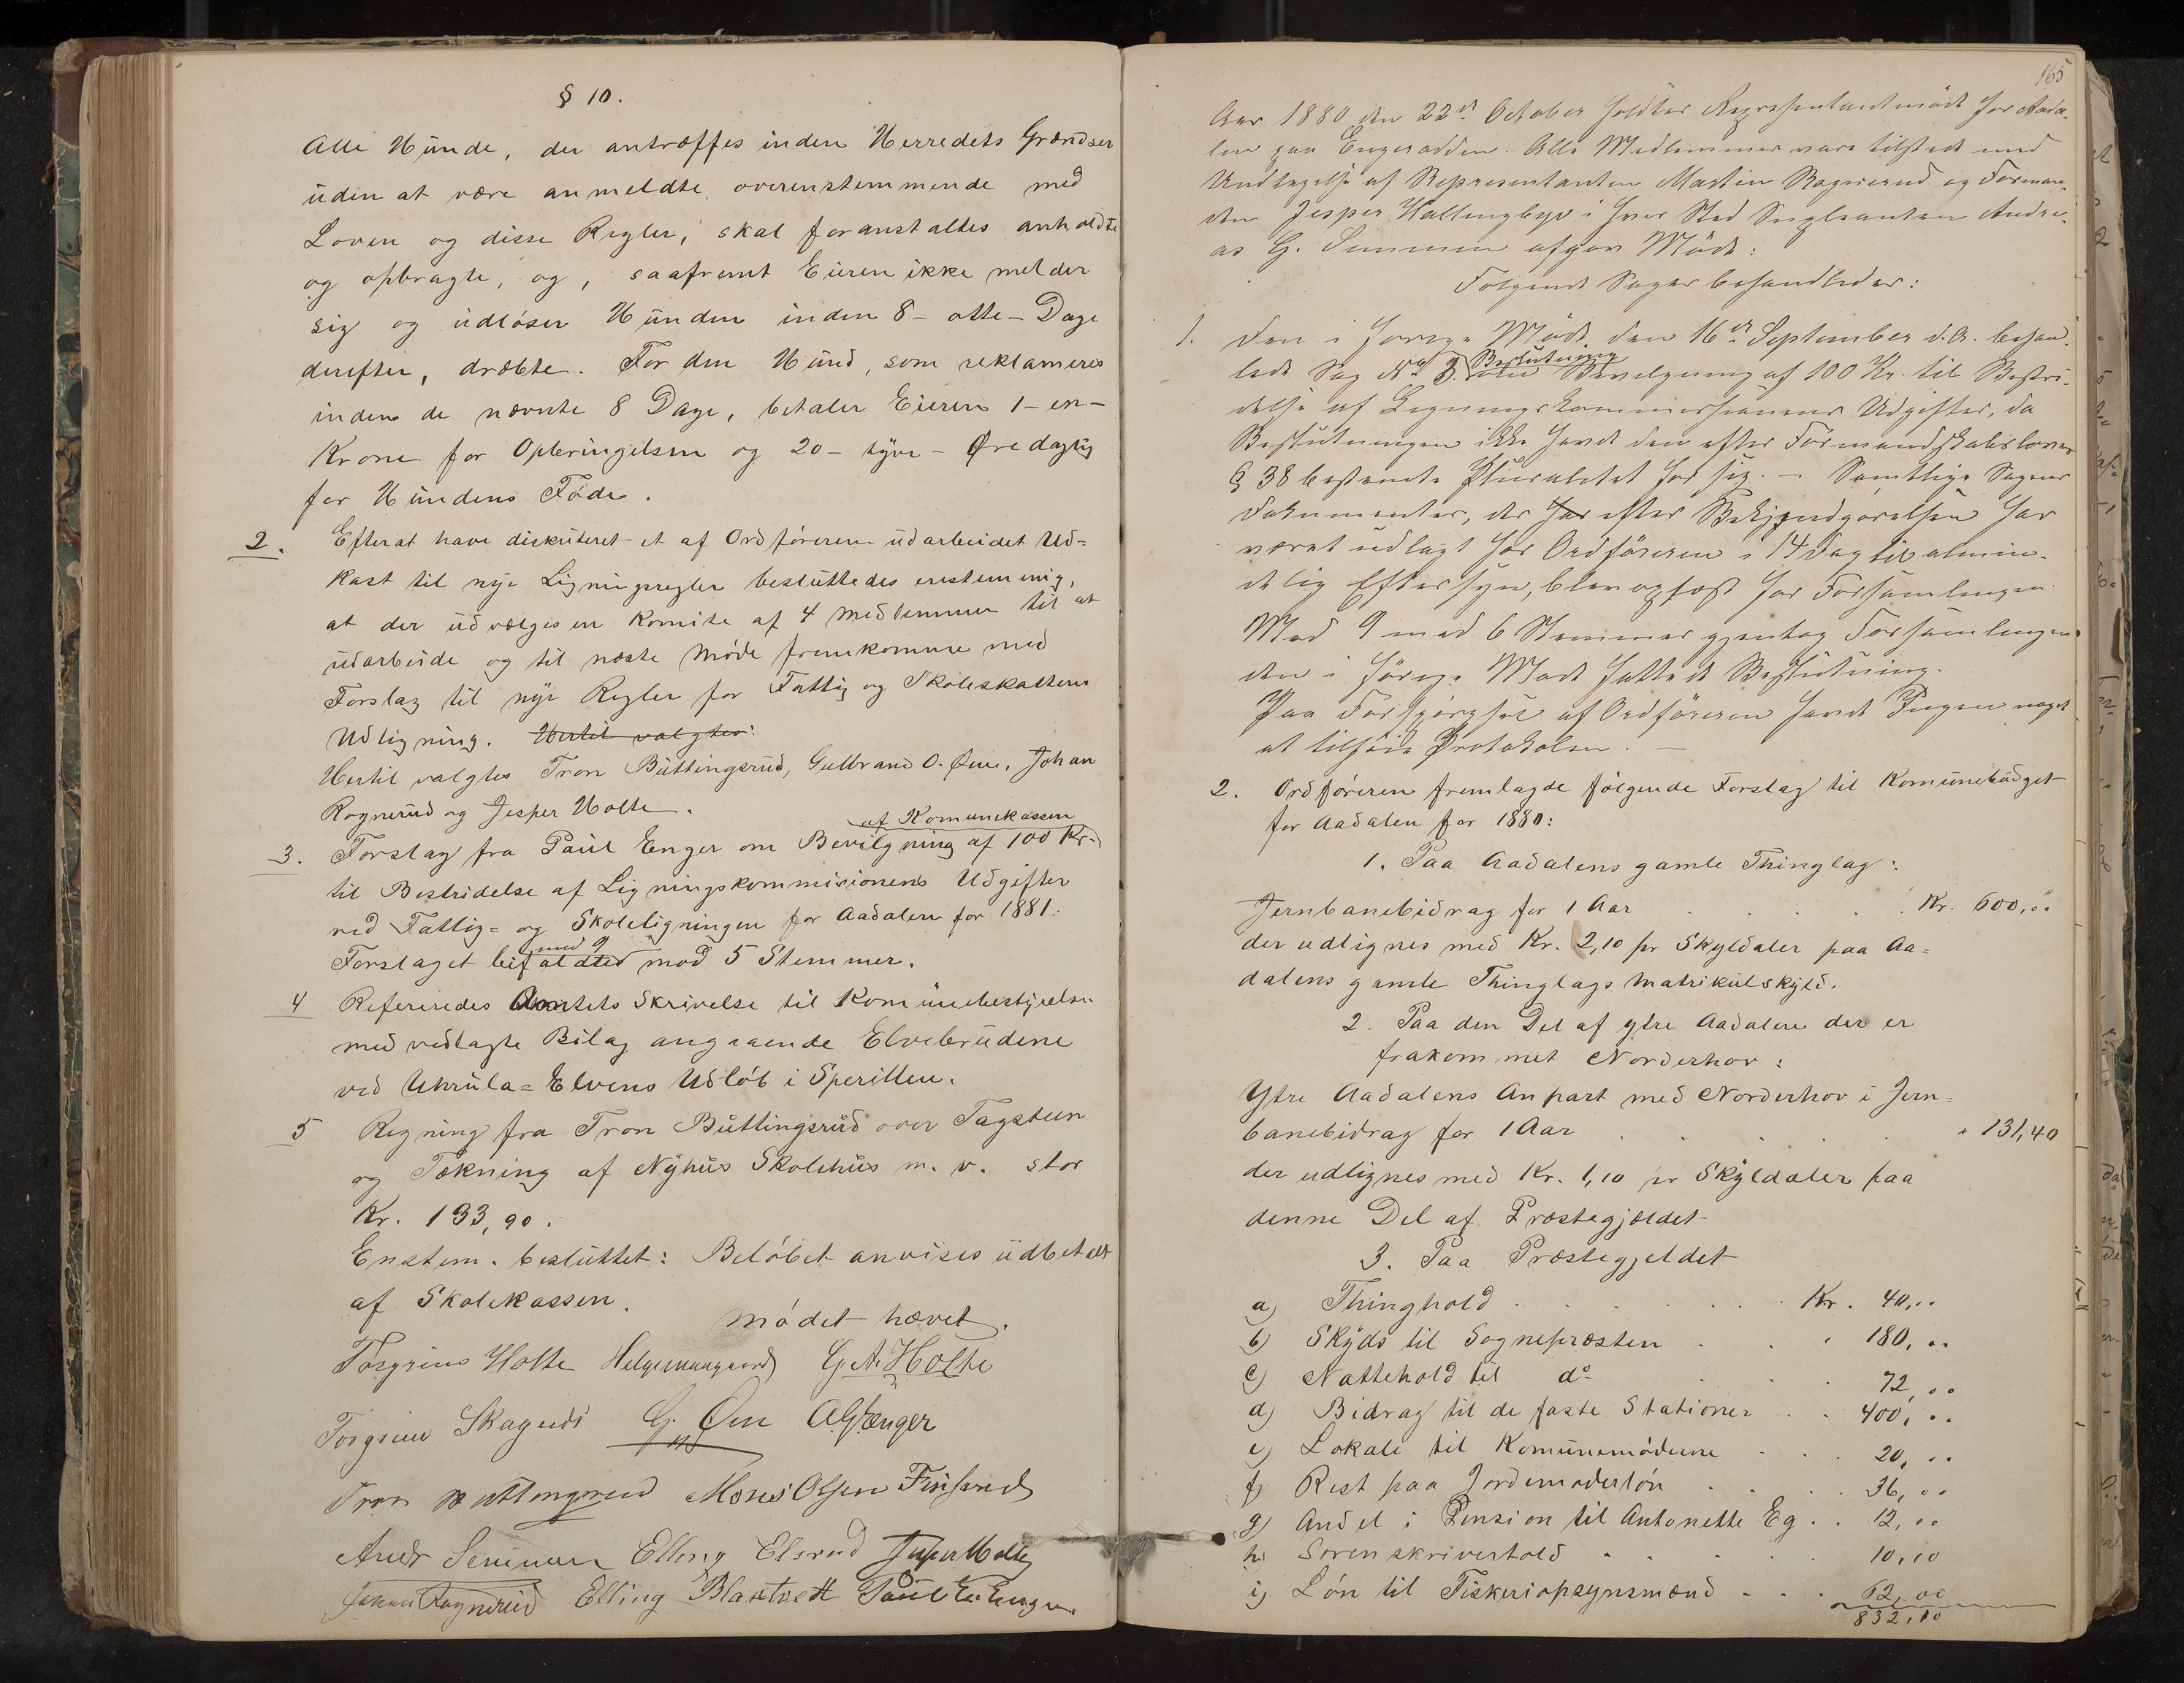 § 10.
Alle Hunde, der antræffes inden Herredets Grændser
uden at være anmeldte overenstemmende med
Loven og disse Regler, skal foranstaltes anholdte
og opbragte, og, saafremt Eieren ikke melder
sig og udløser Hunden inden 8 - otte - Dage
derefter, dræbte. For den Hund, som reklameres
inden de nævnte 8 Dage, betaler Eieren 1 - en -
Krone for Opbringelsen og 20 - tyve - Øre daglig
for Hundens Føde.
2. Efterat have diskuteret et af Ordføreren udarbeidet Ud=
kast til nye Ligningsregler besluttedes enstemmig,
at der udvælges en Komite af 4 Medlemmer til at
udarbeide og til næste Møde fremkomme med
Forslag til nye Regler for Fattig og Skoleskattens
Udligning. Hertil valgtes:
Hertil valgtes Tron Buttingsrud, Gulbrand O. Øen, Johan
Rognerud og Jesper Holte.
af Komunekassen
3. Forslag fra Paul Enger om Bevilgning af 100 Kr.
til Bestridelse af Ligningskommisionens Udgifter
ved Fattig= og Skoleligningen for Aadalen for 1881.
med 9
Forslaget bifaldtes mod 5 Stemmer.
4 Refereredes Amtets Skrivelse til Komunebestyrelsen
med vedlagte Bilag angaaende Elvebrudene
ved Uhrula=Elvens Udløb i Sperillen.
5 Regning fra Tron Buttingsrud over Tagsteen
og Tækning af Nyhus Skolehus m. v. stor
Kr. 193,90.
Enstem. besluttet: Beløbet anvises udbetalt
af Skolekassen.
Mødet hævet.
Torgrim Holte Helge G. A. Holte
Torgrim Skagnæs G. Øen A. G. Enger
Tron Buttingsrud Mons Olsen
Andr Semmen Elling Elsrud Jesper Holte
Johan Rognerud Elling Blaktvedt Paul E. Enger
165
Aar 1880 den 22de October holdtes Representantmøde for Aada-
len paa Engerodden. Alle Medlemmer vare tilstede med
Undtagelse af Representanten Martin Rognerud og Forman-
den Jesper Hallingby i hvis Sted Supleanten Andre-
as G. Semmen afgav Møde:
Følgende Sager behandledes:
1. Den i forrige Møde den 16de September d. A. behan-
Beslutning
lede Sag No 3. om Bevilgning af 100 Kr. til Bestri-
delse af Ligningskommissionens Udgifter, da
Beslutningen ikke havde den efter Formandskabsloven
§ 38 bestemte Pluralitet for sig. - Samtlige Sagens
Dokumenter, der har efter Bekjendtgørelsen har
været udlagt hos Ordføreren i 14 Dag til almin-
delig Eftersyn, blev oplæst for Forsamlingen
Med 9 mod 6 Stemmer gjentog Forsamlingen
den i forrige Møde fattede Beslutning.
Paa Forspørgsel af Ordføreren havde Ingen noget
at tilføie Protokolen. -
2. Ordføreren fremlagde følgende Forslag til Komunebudget
for Aadalen for 1880:
1. Paa Aadalens gamle Thinglag:
Jernbanebidrag for 1 Aar . . . . Kr. 600,00
der udlignes med Kr. 2,10 pr Skyldaler paa Aa=
dalens gamle Thinglags Matrikulskyld.
2. Paa den Del af ytre Aadalen der er
frakommet Norderhov:
Ytre Aadalens Anpart med Norderhov i Jern=
banebidrag for 1 Aar . . . . " 131,40
der udlignes med Kr. 1,10 pr Skyldaler paa
denne Del af Præstegjældet
3. Paa Præstegjeldet
a) Thinghold . . . . Kr. 40,00
b) Skyds til Sognepræsten . . . 180,00
c) Nattehold til do . . . 72,00
d) Bidrag til de faste Stationer . . 400,00
e) Lokale til Komunemøderne . . . 20,00
f) Rest paa Jordemoderløn . . . 36,00
g) Andel i Pension til Antonette Eg . . 12,00
h) Sorenskriverhold . . . . 10,10
i) Løn til Fiskeriopsynsmænd . . . 62,00
832,10